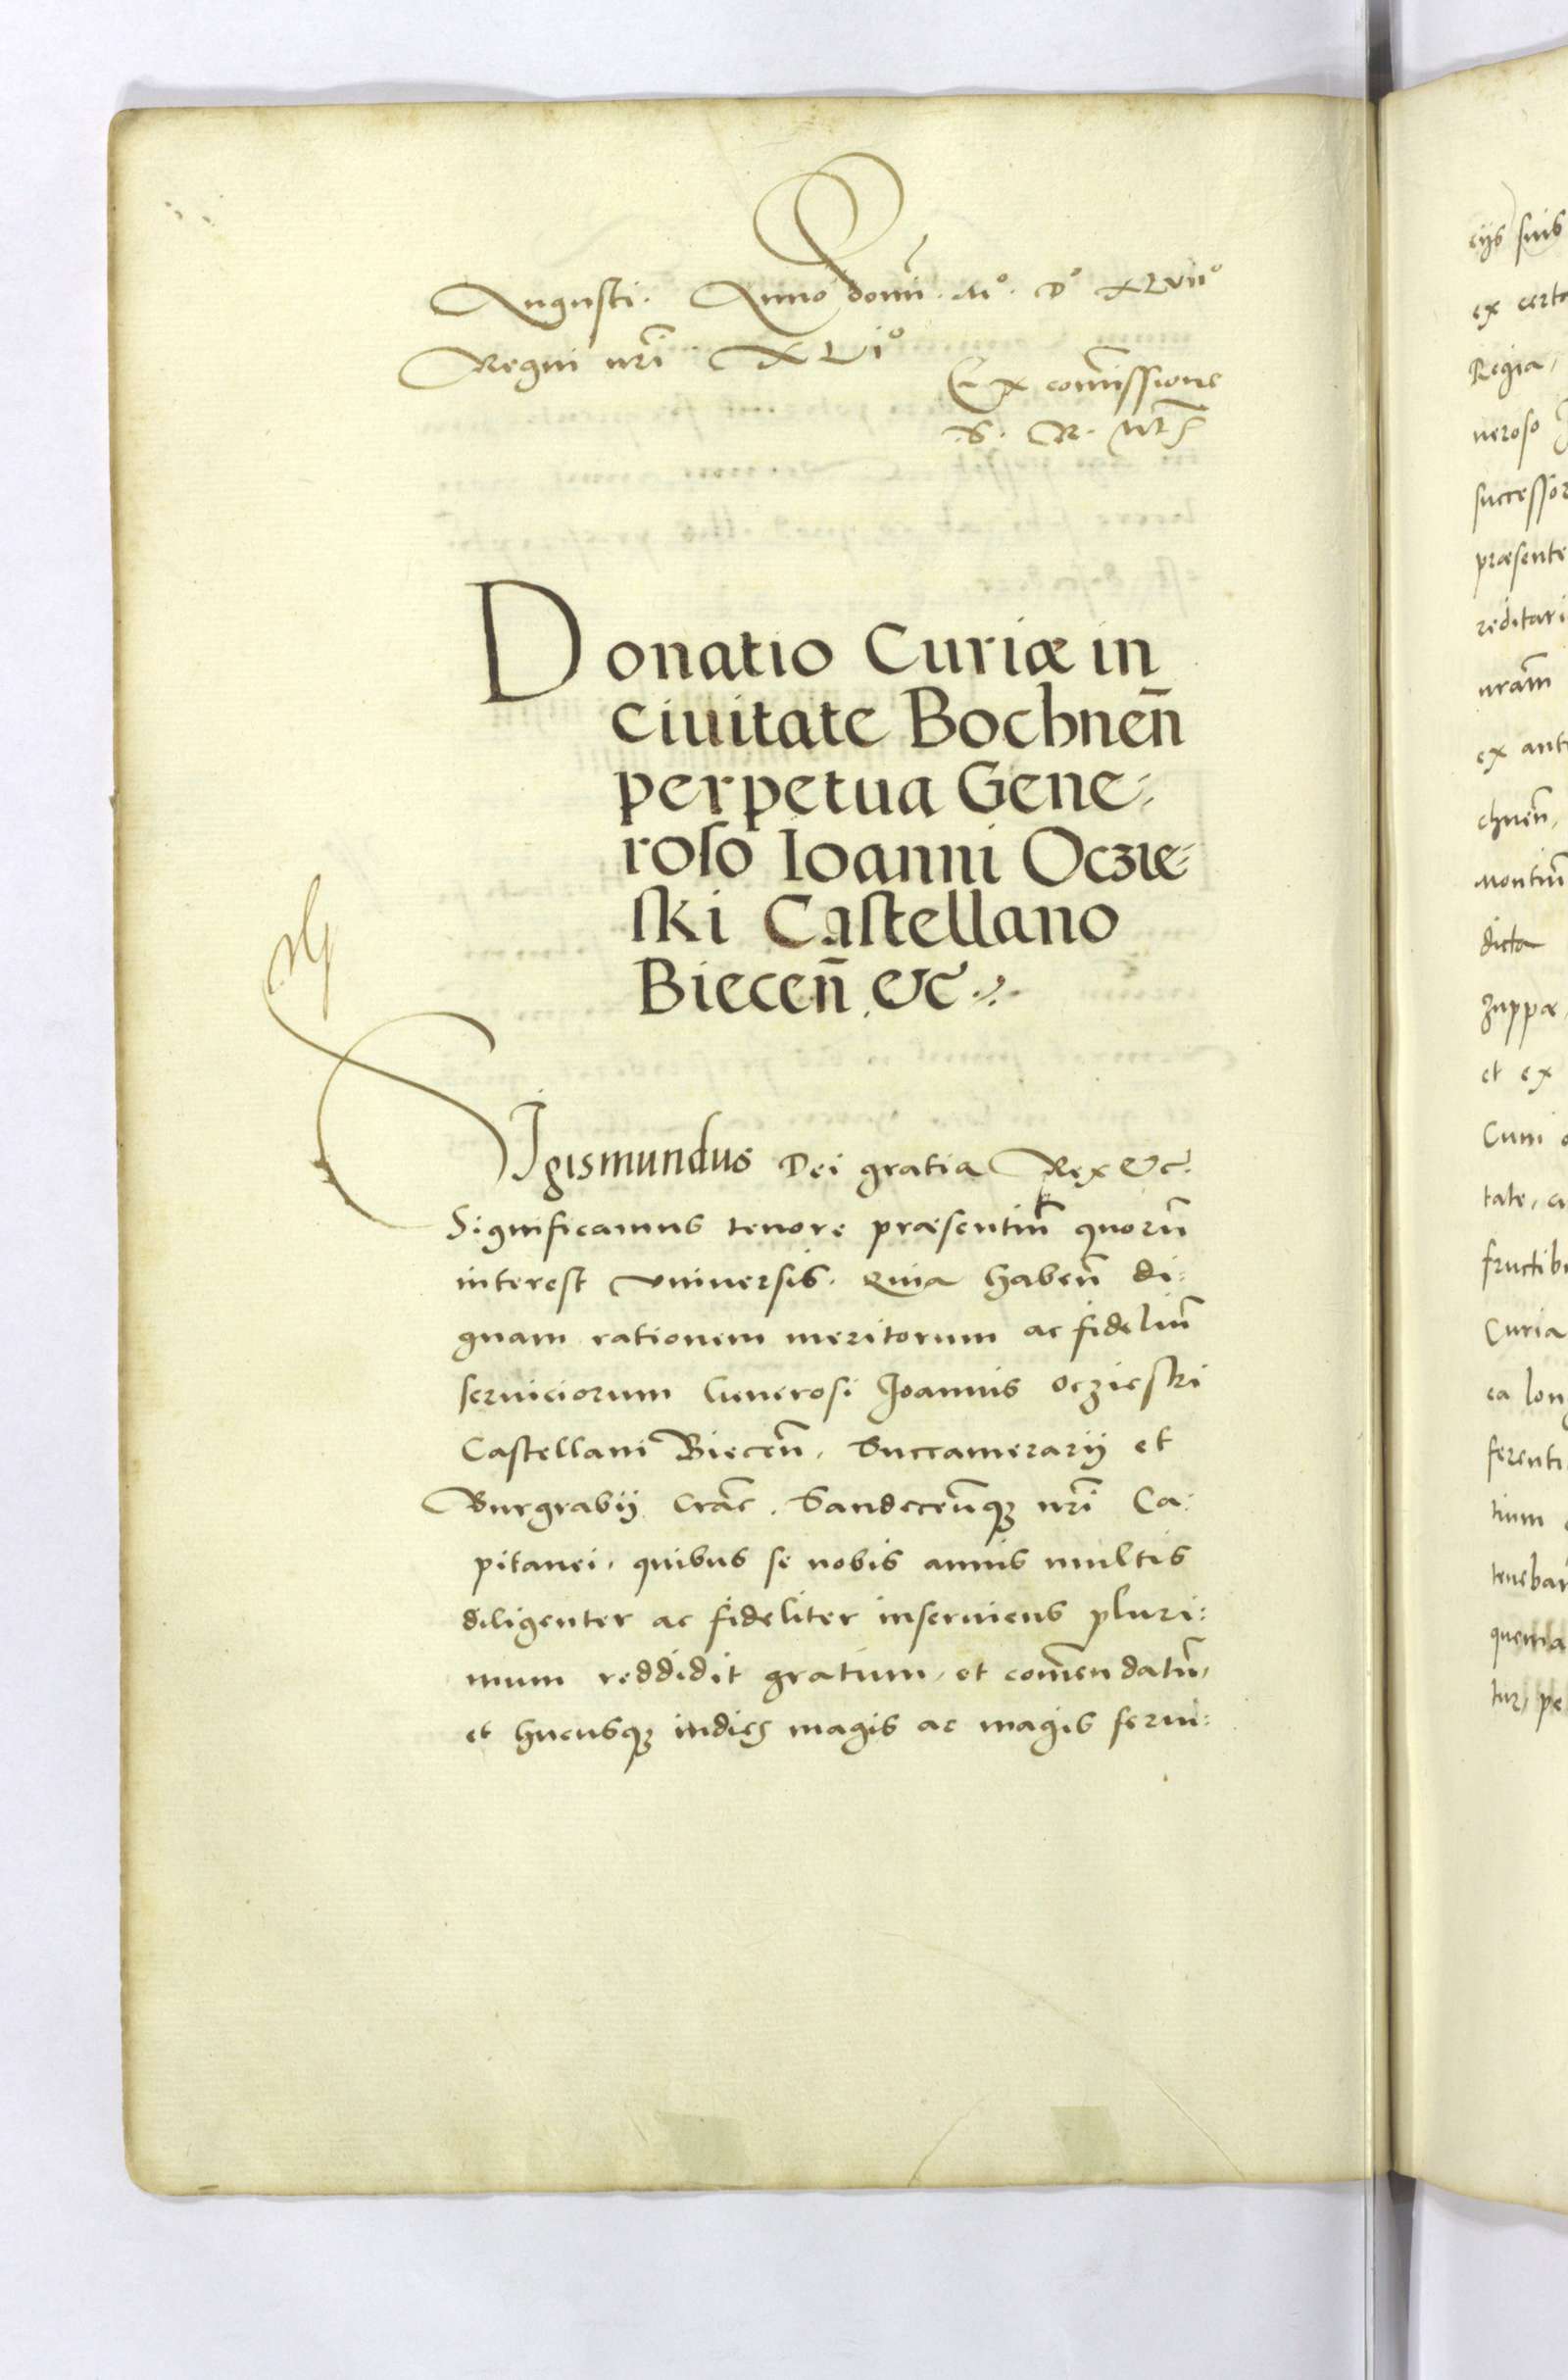 Augusti. Anno domī. M°. D° XLVII°
Regni nrī XLI°
Ex com̄issione
S. R. Mtꝭ
Donatio Curiæ in
ciuitate Bochnen̄
perpetua Gene⸗
roso Ioanni Oczie⸗
ski Castellano
Biecen̄ &c
Sigismundus Dei gratia Rex &c.
Significamus tenore præsentiū quorū
interest vniuersis. Quia haben̄ di:
gnam rationem meritorum ac fideliū
seruiciorum Generosi Joannis Oczieski
Castellani Biecen̄. Succamerarij et
Burgrabij Crac̄. Sandecen̄qꝫ nrī Ca:
pitanei, quibus se nobis annis multis
diligenter ac fideliter inseruiens pluri:
mum reddidit gratum, et com̄endatū,
et hucusqꝫ indies magis ac magis serui:
eijs suis
ex certa
Regia,
neroso
successor
præsente
reditari
nram̄
ex ant
chnen̄,
Montiū
dicta
Zuppæ,
et ex
Cum
tate, a
fructib
Curia
ea lon
ferenti
tium
teneban
quema
tur, pe